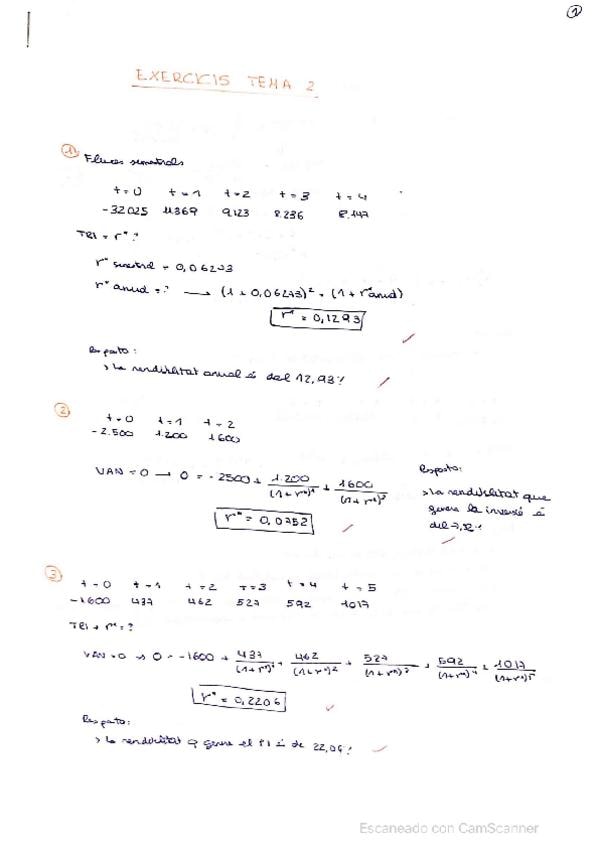 1
EXERCICIS TEMA 2
1) Fluxos semestrals
t=0 t=1 t=2 t=3 t=4
-32025 11369 9.123 8.236 8.147
TRI = r* ?
r* semestral = 0,06273
r* anual = ? → (1 + 0,06273)² = (1 + r*anual)
r* = 0,1293
Resposta:
> La rendibilitat anual és del 12,93%
2) t=0 t=1 t=2
-2.500 1.200 1600
VAN = 0 → 0 = -2500 + 1.200/(1+r*)¹ + 1600/(1+r*)²
r* = 0,0752
Resposta:
> La rendibilitat que
genera la inversió és
del 7,52%
3) t=0 t=1 t=2 t=3 t=4 t=5
-1600 437 462 527 592 1017
TRI = r* = ?
VAN = 0 → 0 = -1600 + 437/(1+r*)¹ + 462/(1+r*)² + 527/(1+r*)³ + 592/(1+r*)⁴ + 1017/(1+r*)⁵
r* = 0,2206
Resposta:
> La rendibilitat q genera el PI és de 22,06%
Escaneado con CamScanner